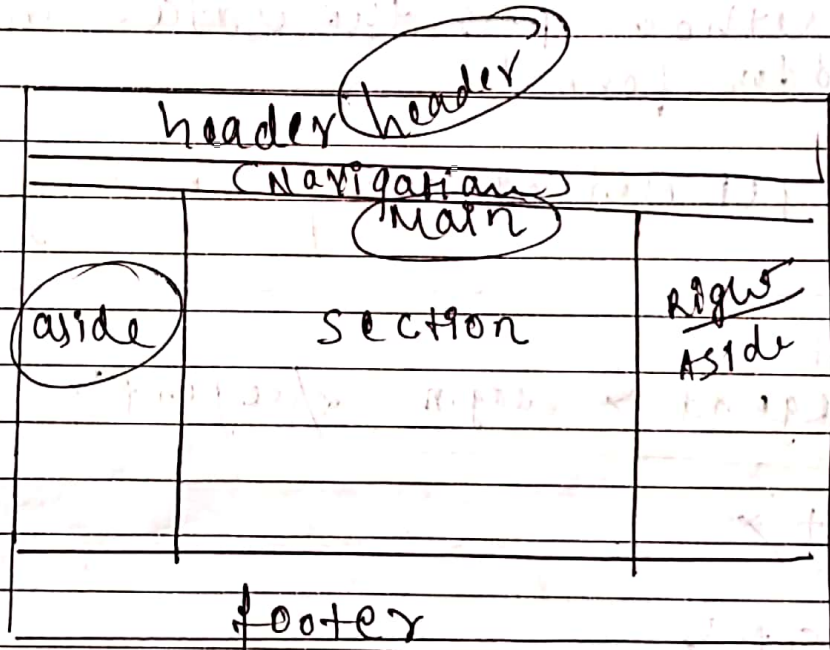 header
header
(Navigation)
Main
aside
section
Right
Aside
footer